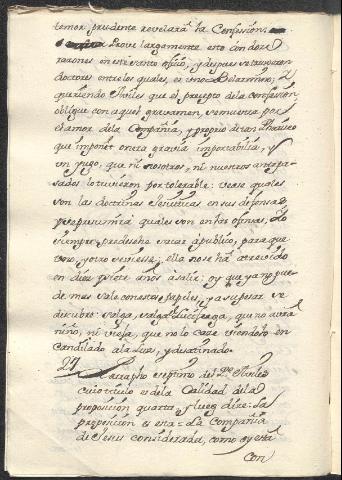 temor prudente revelara la Confesion:
Prove largamente esto con doze
razones en este punto ofizio, y despues
doctores entre los quales, es uno Belarmino; y
queriendo Aviles que el precepto de la confesion
obligue con aquel gravamen, se muestra por
el amor de la Compañia, y proprio de tan Phariseo
que imponer onera gravia importabilia, y
un yugo, que ni nosotros, ni nuestros antepa-
sados lo tuvieron por tolerable: vease quales
son las doctrinas Jesuiticas en sus defensas
y se presumirá quales son en las ofensas,
siempre, perdesehe sacar á publico, para que
uno, y otro se viesse; ella no se há atrevido
en diez y siete años á salir; oy que ya no pue-
de mas vale con estos papeles, y a su pesar se
descubre: salga, salga a luz, que no avrá
niño, ni vieja, que no lo case viendolo en
candilado a la luz, y desatinado.
27
Parrapho septimo del Pe. Aviles
cuio titulo es de la Calidad de la
proposicion quarta, y luego dize: La
proposicion es esta: La Compañia
de Jesus considerada, como oy está
Con